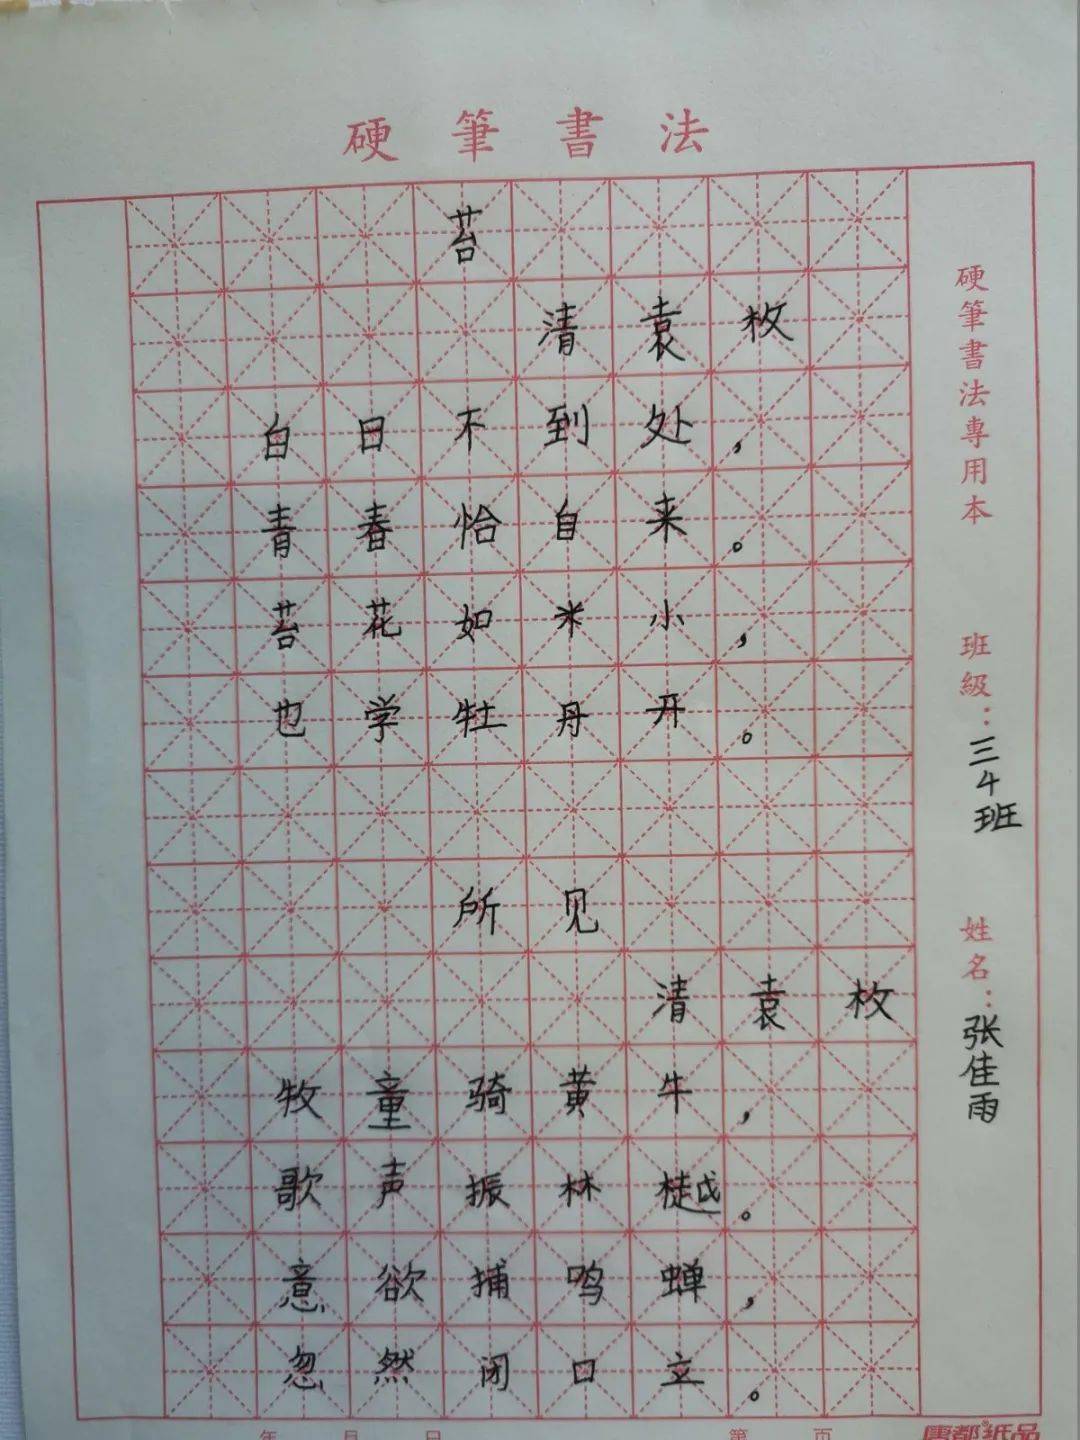 硬筆書法
苔
清袁枚
白日不到处，
青春恰自来。
苔花如米小，
也学牡丹开。
所见
清袁枚
牧童骑黄牛，
歌声振林樾。
意欲捕鸣蝉，
忽然闭口立。
硬筆書法專用本
班級：三4班
姓名：张佳雨
年 月 日
第 页
唐都®纸品